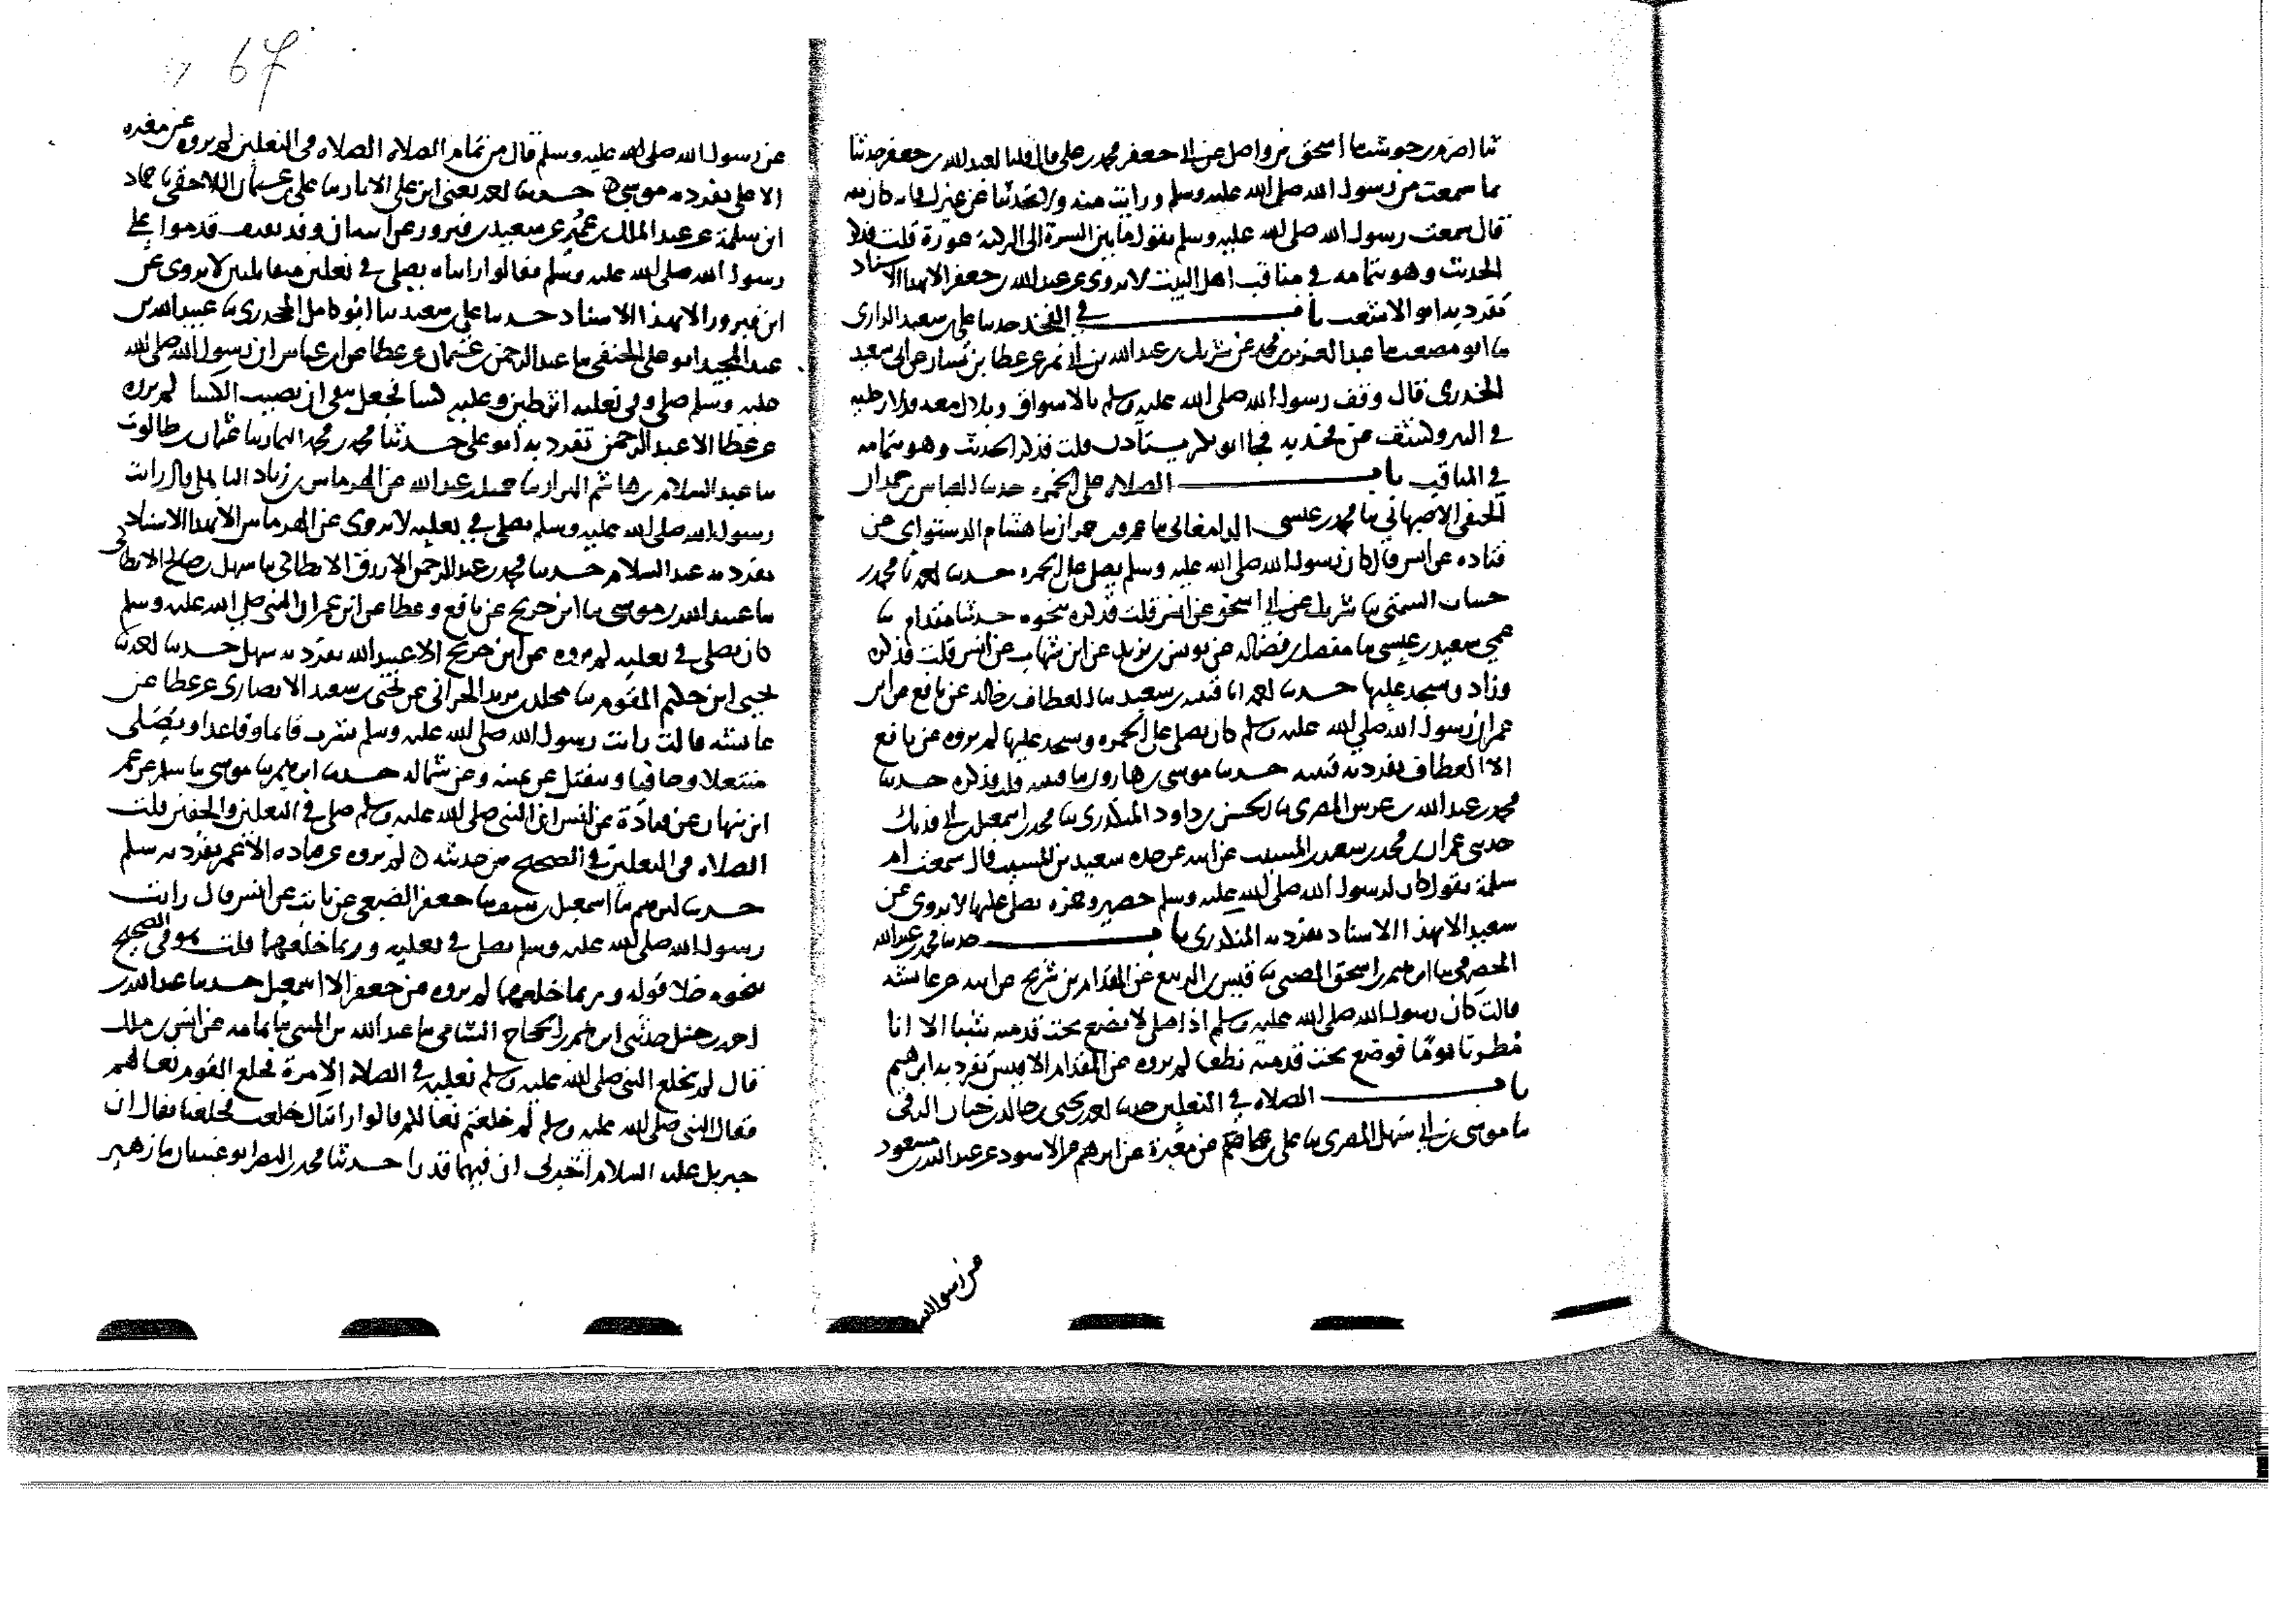 ثنا اصرم بن حوشب ثنا اسحق بن واصل عن ابي جعفر محمد بن علي قال قلنا لعبد الله بن جعفر حدثنا
ما سمعت من رسول الله صلى الله عليه وسلم ورايت منه ولا تحدثنا عن غيرك وان كان ثقه
قال سمعت رسول الله صلى الله عليه وسلم يقول ما بين السرة الى الركبة عورة قلت فذكر
الحديث وهو بتمامه في مناقب اهل البيت لا يروى عن عبد الله بن جعفر الا بهذا الاسناد
تفرد به ابو الاشعث باب في الفخذ حدثنا علي بن سعيد الرازي
ثنا ابو مصعب ثنا عبد العزيز بن محمد عن شريك بن عبد الله بن ابي نمر عن عطا بن يسار عن ابي سعيد
الخدري قال وقف رسول الله صلى الله عليه وسلم بالاسواف وبلال معه فدلا رجليه
في البير وكشف عن فخذيه فجا ابو بكر يستاذن قلت فذكر الحديث وهو بتمامه
في المناقب باب الصلاة على الخمره حدثنا العباس بن حمدان
الحنفي الاصبهاني ثنا محمد بن عيسى الدامغاني ثنا عمرو بن حمران ثنا هشام الدستواي عن
قتاده عن انس قال كان رسول الله صلى الله عليه وسلم يصلي على الخمره حدثنا احمد ثنا محمد بن
حسان السمتي ثنا شريك عن ابي اسحق عن انس قلت فذكره نحوه حدثنا مقدام ثنا
عمي سعيد بن عيسى ثنا مفضل بن فضاله عن يونس بن يزيد عن ابن شهاب عن انس قلت فذكره
وزاد ويسجد عليها حدثنا احمد ثنا قتيبه بن سعيد ثنا العطاف بن خالد عن نافع عن ابن
عمر ان رسول الله صلى الله عليه وسلم كان يصلي على الخمره ويسجد عليها لم يروه عن نافع
الا العطاف تفرد به قتيبه حدثنا موسى بن هارون ثنا قتيبه قلت فذكره حدثنا
محمد بن عبد الله بن عرس المصري ثنا الحسن بن داود المنكدري ثنا محمد بن اسمعيل بن ابي فديك
حدثني عمران بن محمد بن سعيد بن المسيب عن ابيه عن جده سعيد بن المسيب قال سمعت ام
سلمة تقول كان لرسول الله صلى الله عليه وسلم حصير وخمره يصلي عليها لا يروى عن
سعيد الا بهذا الاسناد تفرد به المنكدري باب حدثنا محمد بن عبد الله
الحضرمي ثنا ابرهيم بن اسحق الصيني ثنا قيس بن الربيع عن المقدام بن شريح عن ابيه عن عائشه
قالت كان رسول الله صلى الله عليه وسلم اذا صلى لا يضع تحت قدميه شيئا الا انا
مطرنا يوما فوضع تحت قدميه نطعا لم يروه عن المقدام الا قيس تفرد به ابرهيم
باب الصلاه في النعلين حدثنا احمد بن يحيى بن خالد بن حيان الرقي
ثنا موسى بن ابي سهل المصري ثنا علي بن عاصم عن مغيرة عن ابرهيم عن الاسود عن عبد الله بن مسعود
عن رسول الله
عن رسول الله صلى الله عليه وسلم قال من تمام الصلاه الصلاه في النعلين لم يروه عن مغيره
الا علي تفرد به موسى حدثنا احمد يعني ابن علي الابار ثنا علي بن عثمان اللاحقي ثنا حماد
ابن سلمة عن عبد الملك بن عمير عن سعيد بن فيروز عن ابيه ان وفد ثقيف قدموا على
رسول الله صلى الله عليه وسلم فقالوا رايناه يصلي في نعلين متقابلين لا يروى عن
ابن فيروز الا بهذا الاسناد حدثنا علي بن سعيد ثنا ابو كامل الجحدري ثنا عبيد الله بن
عبد المجيد ابو علي الحنفي ثنا عبد الرحمن بن عثمان عن عطا عن ابن عباس ان رسول الله صلى الله
عليه وسلم صلى وفي نعليه وعليه كسا فجعل يتقي ان يصيب الكسا لم يروه
عن عطا الا عبد الرحمن تفرد به ابو علي حدثنا محمد بن محمد التمار ثنا عثمان بن طالوت
ثنا عبد السلام بن هاشم البزار ثنا حنبل بن عبد الله عن الهرماس بن زياد الباهلي قال رايت
رسول الله صلى الله عليه وسلم يصلي في نعليه لا يروى عن الهرماس الا بهذا الاسناد
تفرد به عبد السلام حدثنا محمد بن عبد الرحمن الازرق الانطاكي ثنا سهل بن صالح الانطاكي
ثنا عبيد الله بن موسى ثنا ابن جريج عن نافع وعطا عن ابن عمر ان النبي صلى الله عليه وسلم
كان يصلي في نعليه لم يروه عن ابن جريج الا عبيد الله تفرد به سهل حدثنا احمد ثنا
يحيى ابن حكيم المقوم ثنا مخلد بن يزيد الحراني عن يحيى بن سعيد الانصاري عن عطا عن
عائشه قالت رايت رسول الله صلى الله عليه وسلم يشرب قائما وقاعدا ويصلي
منتعلا وحافيا وينفتل عن يمينه وعن شماله حدثنا ابرهيم ثنا موسى ثنا سلم عن عمر
ابن نبهان عن قتادة عن انس ان النبي صلى الله عليه وسلم صلى في النعلين والخفين قلت
الصلاه في النعلين في الصحيح من حديثه لم يروه عن قتاده الا عمر تفرد به سلم
حدثنا ابرهيم ثنا اسمعيل بن سيف ثنا جعفر الضبعي عن ثابت عن انس قال رايت
رسول الله صلى الله عليه وسلم يصلي في نعليه وربما خلعهما قلت هو في الصحيح
بنحوه خلا قوله وربما خلعهما لم يروه عن جعفر الا اسمعيل حدثنا عبد الله بن
احمد بن حنبل حدثني ابرهيم بن الحجاج الشامي ثنا عبد الله بن المثنى ثنا ثمامه عن انس بن مالك
قال لم يخلع النبي صلى الله عليه وسلم نعليه في الصلاه الا مرة فخلع القوم نعالهم
فقال النبي صلى الله عليه وسلم لم خلعتم نعالكم قالوا رايناك خلعت فخلعنا فقال ان
جبريل عليه السلام اخبرني ان فيهما قذرا حدثنا محمد بن النضر ابو غسان ثنا زهير